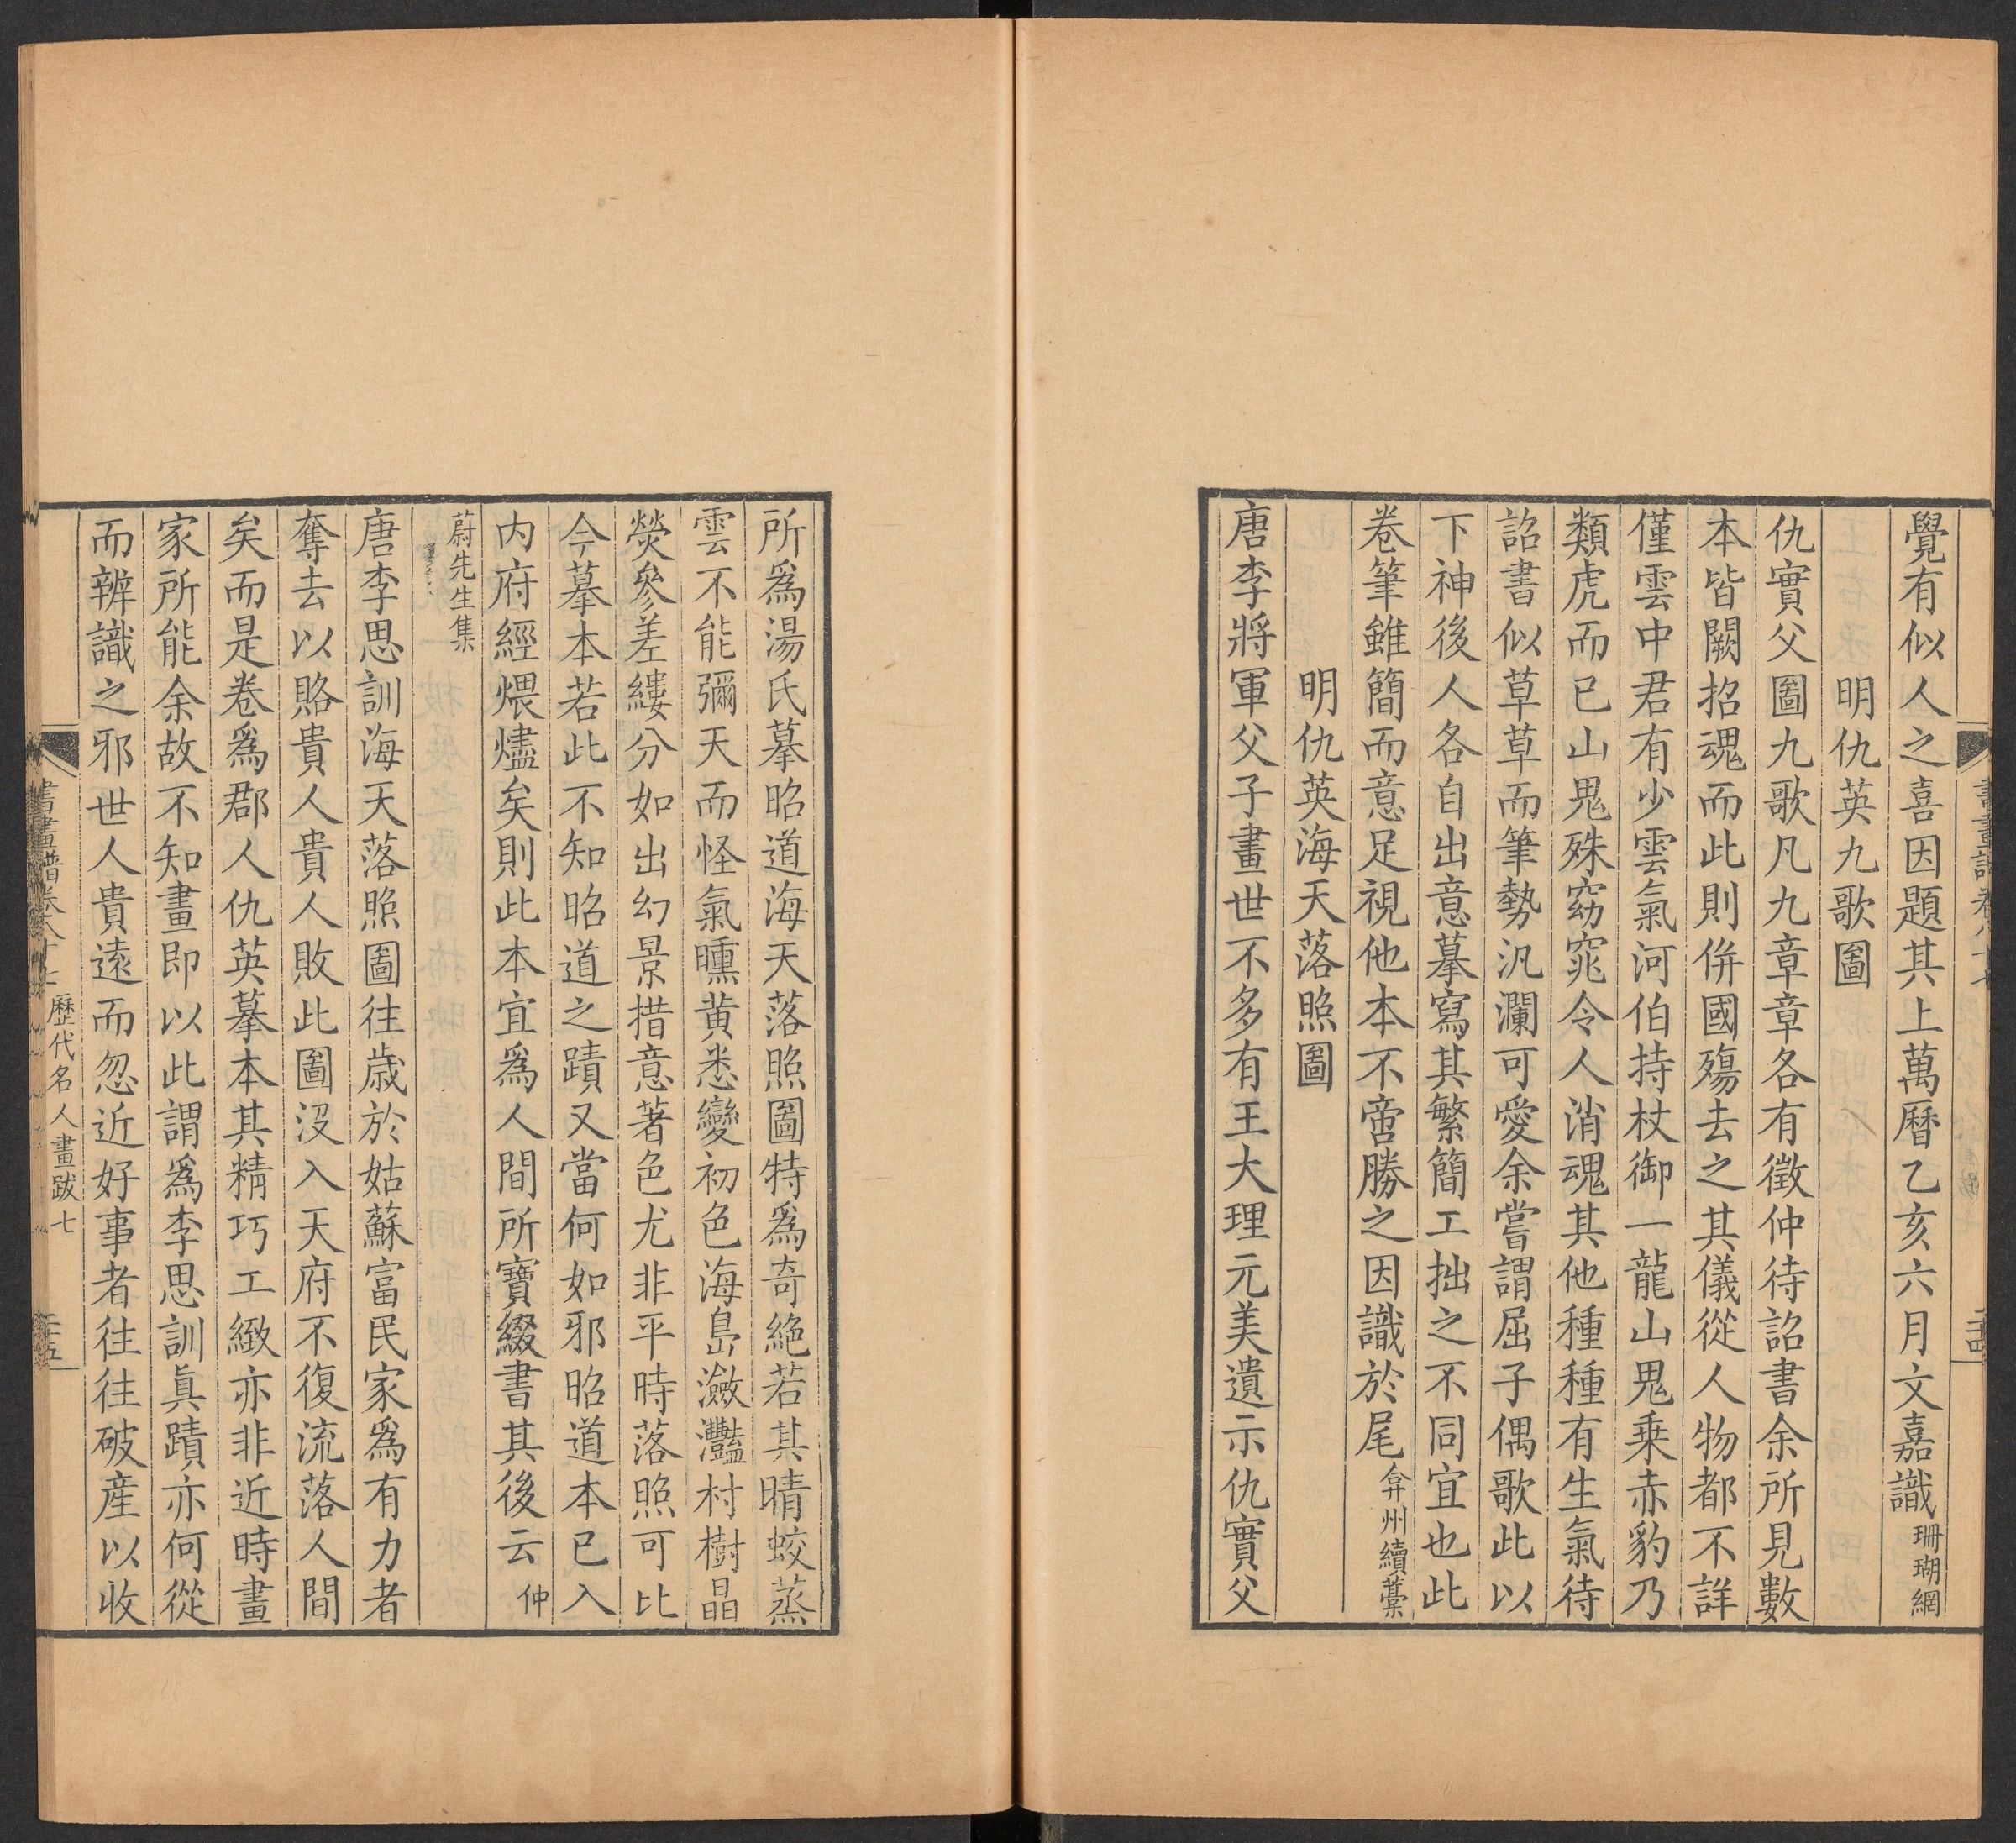 覺有似人之喜因題其上萬曆乙亥六月文嘉識珊瑚網
明仇英九歌圖
仇實父圖九歌凡九章章各有徵仲待詔書余所見數
本皆闕招魂而此則併國殤去之其儀從人物都不詳
僅雲中君有少雲氣河伯持杖御一龍山鬼乗赤豹乃
類虎而已山鬼殊窈窕令人消魂其他種種有生氣待
詔書似草草而筆勢汎瀾可愛余嘗謂屈子偶歌此以
下神後人各自出意摹寫其繁簡工拙之不同宜也此
卷筆雖簡而意足視他本不啻勝之因識於尾弇州續藁
明仇英海天落照圖
唐李將軍父子畫世不多有王大理元美遺示仇實父
書畫譜卷八十七
二十四
所爲湯氏摹昭道海天落照圖特爲奇絶若其晴蛟蒸
雲不能彌天而怪氣曛黄悉變初色海島瀲灩村樹晶
熒參差縷分如出幻景措意著色尤非平時落照可比
今摹本若此不知昭道之蹟又當何如邪昭道本已入
内府經煨燼矣則此本宜爲人間所寶綴書其後云仲
蔚先生集
唐李思訓海天落照圖往歳於姑蘇富民家爲有力者
奪去以賂貴人貴人敗此圖没入天府不復流落人間
矣而是卷爲郡人仇英摹本其精巧工緻亦非近時畫
家所能余故不知畫即以此謂爲李思訓眞蹟亦何從
而辨識之邪世人貴遠而忽近好事者往往破産以收
書畫譜卷八十七 歷代名人畫跋七
二十五